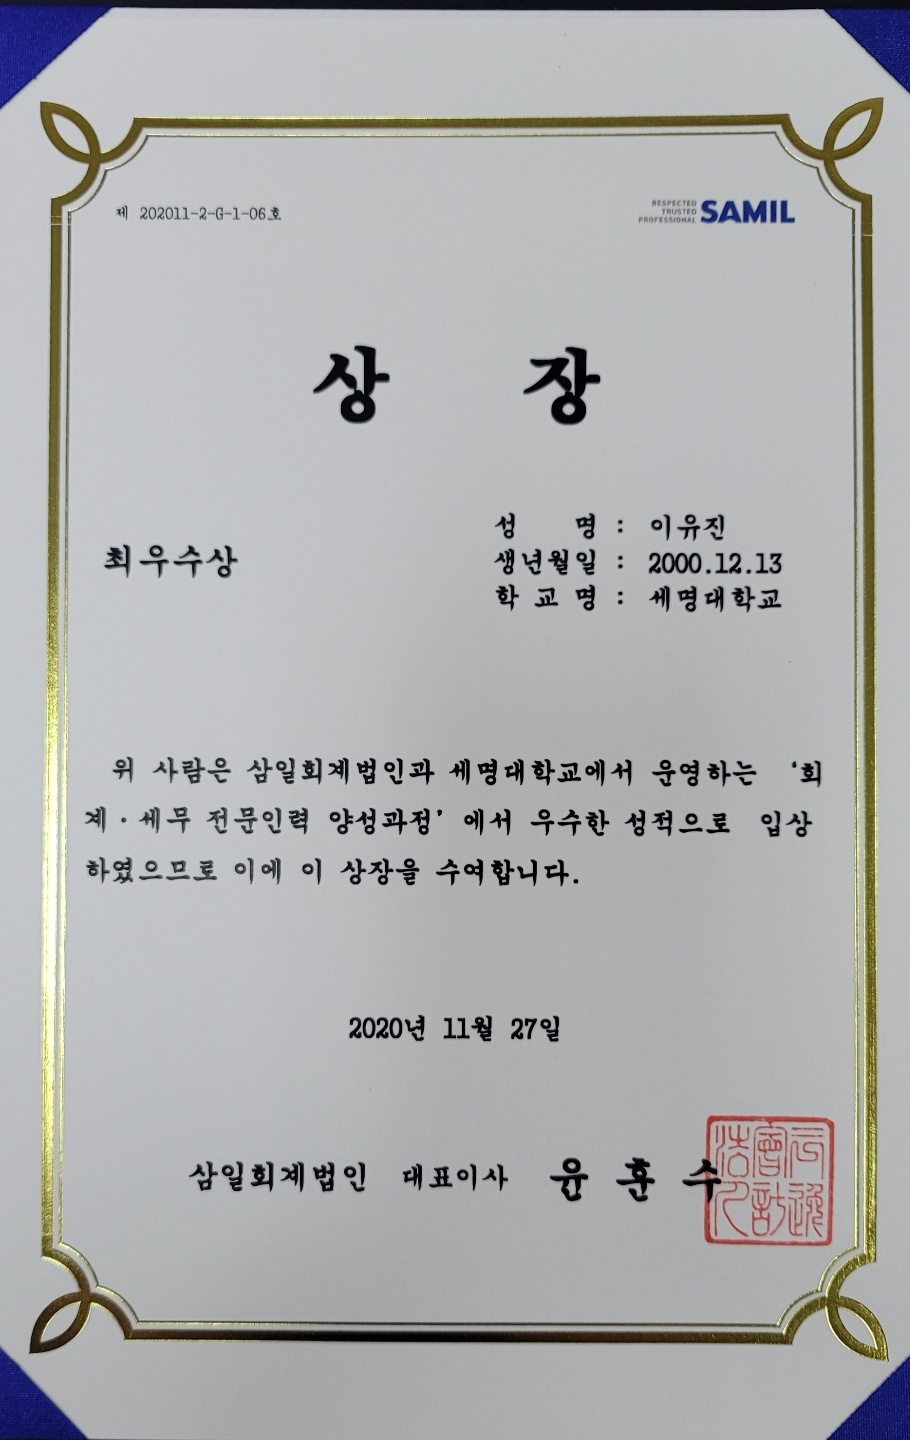 제 202011-2-G-1-06호
RESPECTED
TRUSTED
PROFESSIONAL
SAMIL
상 장
최우수상
성 명 : 이유진
생년월일 : 2000.12.13
학 교 명 : 세명대학교
위 사람은 삼일회계법인과 세명대학교에서 운영하는 '회
계·세무 전문인력 양성과정' 에서 우수한 성적으로 입상
하였으므로 이에 이 상장을 수여합니다.
2020년 11월 27일
삼일회계법인 대표이사 윤 훈 수